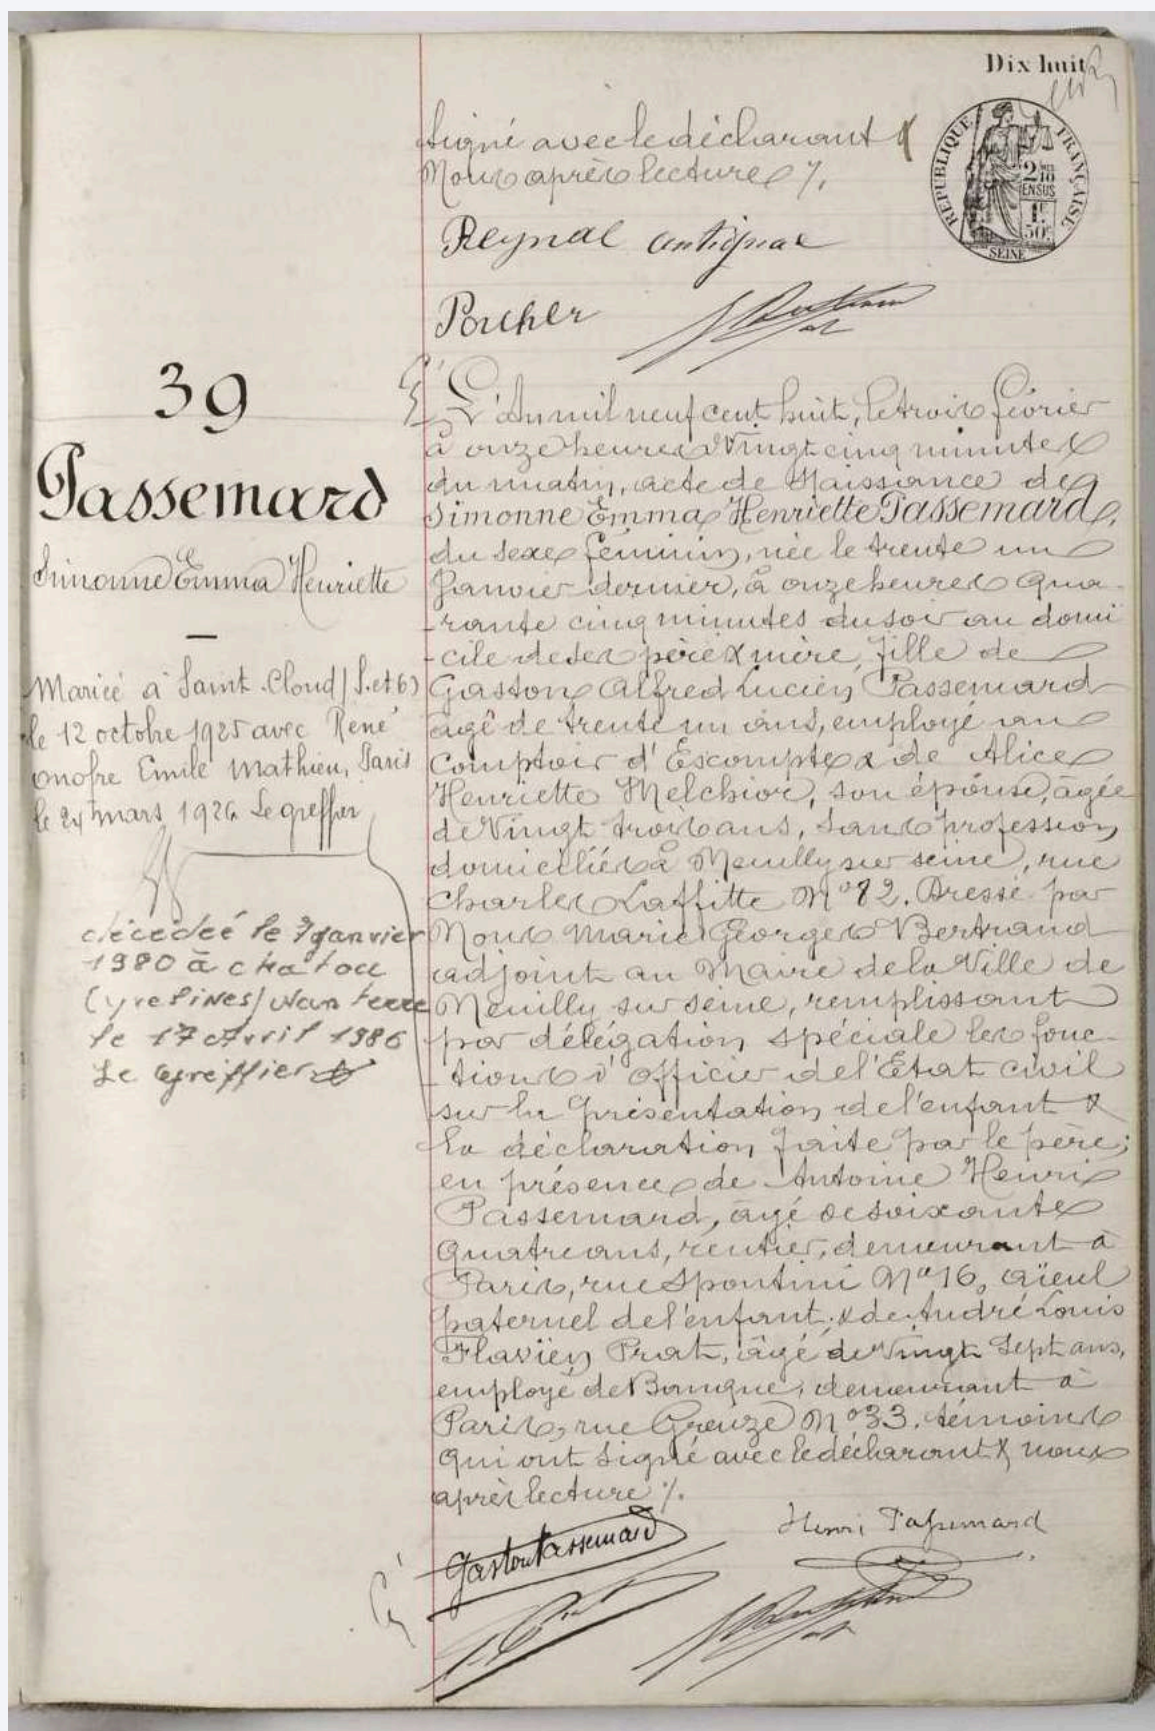 Dix huit
RÉPUBLIQUE FRANÇAISE
2/10
EN SUS
1F
50c
SEINE
signé avec le déclarant &
Nous après lecture ./.
Reynal Antignac
Porcher
39
Passemard
Simonne Emma Henriette
Mariée à Saint-Cloud (S. et O)
le 12 octobre 1925 avec René
onofre Emile Mathieu, Paris
le 24 mars 1926 Le greffier
décédée le 7 janvier
1980 à chatou
(yvelines) Nanterre
le 17 Avril 1986
Le Greffier
L'An mil neuf cent huit, le trois février
à onze heures Vingt cinq minutes
du matin, acte de Naissance de
Simonne Emma Henriette Passemard,
du sexe féminin, née le trente un
Janvier dernier, à onze heures qua-
-rante cinq minutes du soir au domi
-cile de ses père & mère, fille de
Gaston Alfred Lucien Passemard
âgé de trente un ans, employé au
Comptoir d'Escompte & de Alice
Henriette Melchior, son épouse, âgée
de Vingt trois ans, sans profession
domiciliés à Neuilly sur seine, rue
Charles Laffitte No 82. Dressé par
Nous Marie Georges Bertrand
adjoint au Maire de la Ville de
Neuilly sur seine, remplissant
par délégation spéciale les fonc-
-tions d'officier de l'Etat civil
sur la présentation de l'enfant &
la déclaration faite par le père;
en présence de Antoine Henri
Passemard, âgé de soixante
quatre ans, rentier, demeurant à
Paris, rue Spontini No 16, aïeul
paternel de l'enfant; & de André Louis
Flavien Prat, âgé de Vingt Sept ans,
employé de Banque, demeurant à
Paris, rue Greuze No 33. témoins
qui ont signé avec le déclarant & nous
après lecture ./.
Gaston Passemard
Henri Passemard